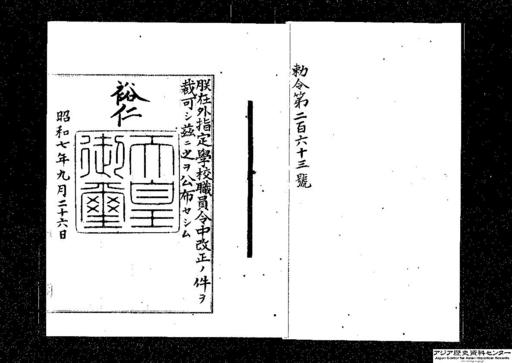 勅令第二百六十三號
朕在外指定學校職員令中改正ノ件ヲ
裁可シ茲ニ之ヲ公布セシム
裕仁
天皇
御璽
昭和七年九月二十六日
アジア歴史資料センター
Japan Center for Asian Historical Records